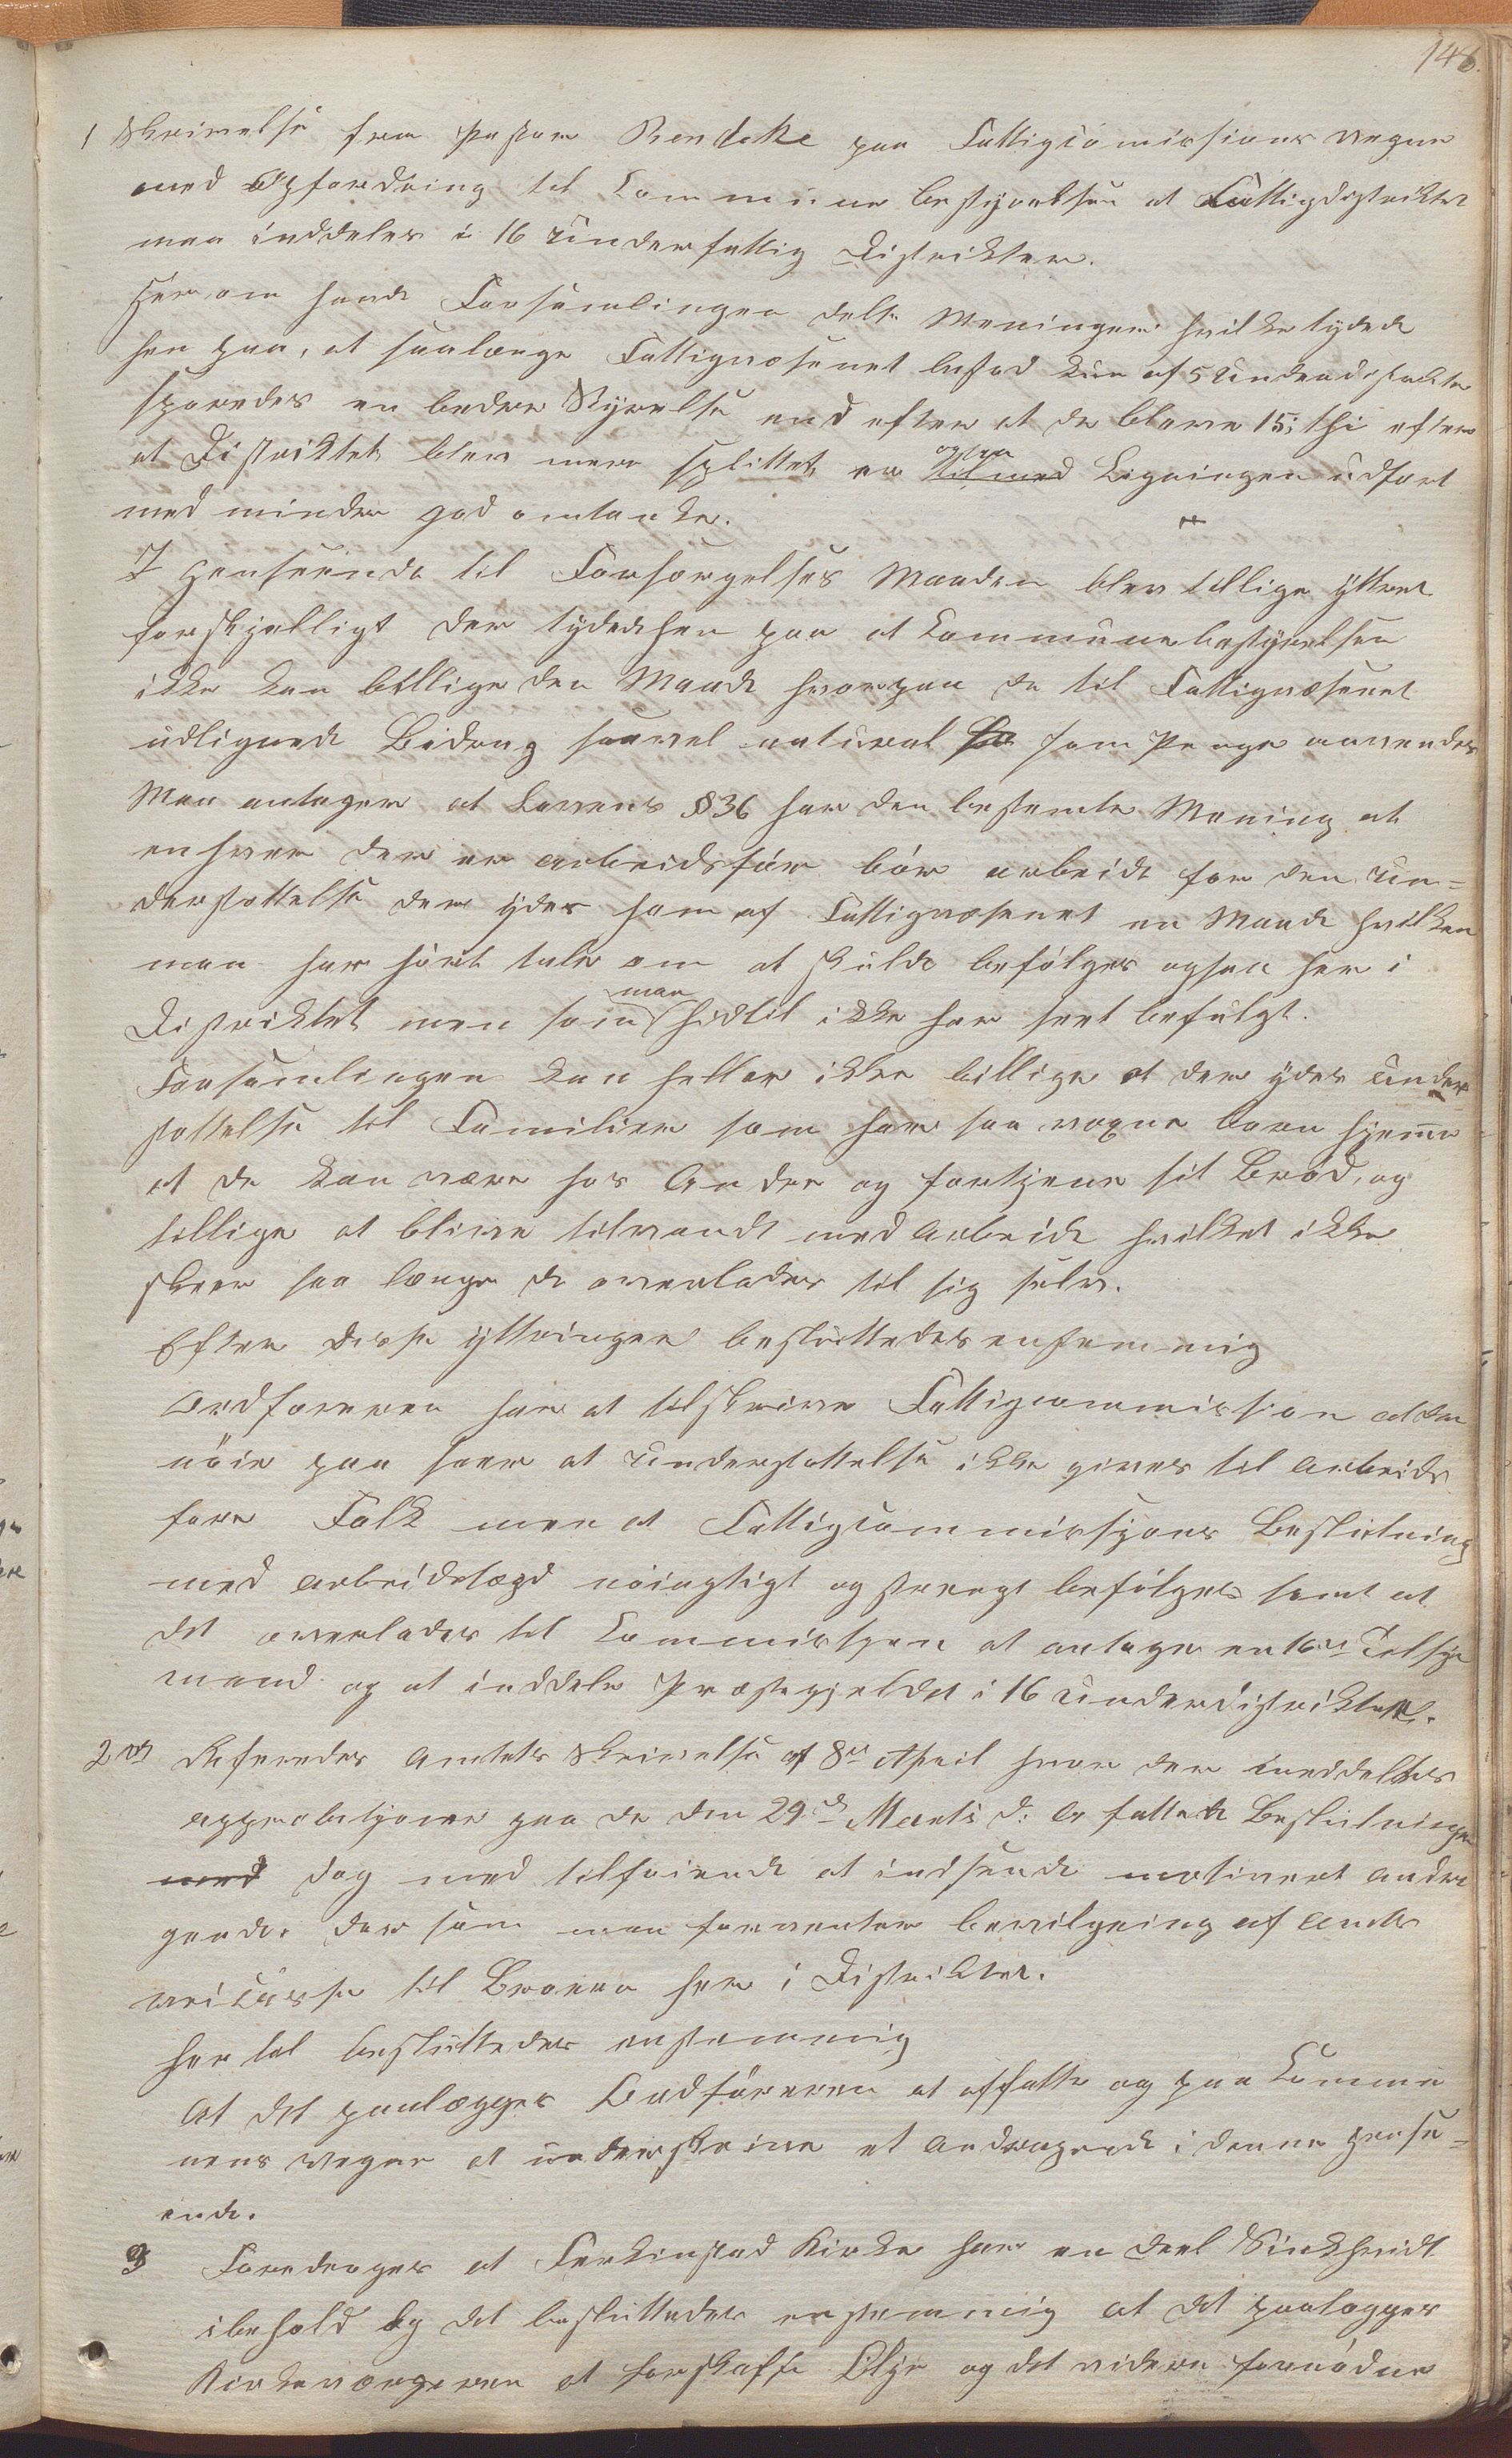 148.
1 Skrivelse fra Pastor Bendeke paa Fattigcomissions vegne
med Opfordring til Commune bestyrelsen at Fattigdistriktet
maa inddeles i 16 Underfattig Distrikter.
Herom havde Forsamlingen delte Meninger hvilke tydede
hen paa, at saalænge Fattigvæsenet bestod kun af 5 Underdistrikter
sporedes en bedre Styrelse end efter at de bleve 15; thi efter
at Distriktet blev mere splittet er ogsaa Ligningen udført
med mindre god omtanke.
I Henseende til Forsørgelses Maaden blev tillige yttret
forskjelligt der tydede hen paa at Communebestyrelsen
ikke kan billige den Maade hvorpaa de til Fattigvæsenet
udlignede Bidrag saavel natural som Penge anvendes
Man antager at Lovens § 36 har den bestemte Mening at
enhver der er arbeidsfør bør arbeide for den Un=
derstøttelse der ydes ham af Fattigvæsenet en Maade hvilken
man har hørt tale om at skulde befølges ogsaa her i
Distriktet men som man hidtil ikke har seet befulgt.
Forsamlingen kan heller ikke billige at der ydes Under
støttelse til Familier som har saa voxne børn hjemme
at de kan være hos Andre og fortjene sit Brød, og
tillige at blive tilvandt med Arbeide hvilket ikke
skeer saa længe de overlades til sig selv.
Efter disse yttringer besluttedes enstemmig
Ordføreren har at tilskrive Fattigcommission at den
nøie paa seer at Understøttelse ikke gives til Arbeids
føre Folk men at Fattigcommissjons Beslutning
med arbeidslægd nøiagtigt og strengt befølges samt at
det overlades til Commissjon at antage en 16de Tilsyns
mand og at inddele Præstegjeldet i 16 Underdistrikter.
2 Refere­redes Amtets Skrivelse af 8de April hvor der meddeltes
approbasjoner paa de den 29de Marts d: A fattede Beslutninger
med dog med tilføiende at indsende motiveret andra
gende. der som man forventer bevilgning af Amts
veicasse til Broer her i Distriktet.
her til besluttedes enstemmig
At det paalægges Ordføreren at affatte og paa Commu
nens vegne at underskrive et Andragende i denne Hense=
ende.
3 Foredroges at Ferkinstad Kirke har en deel Sinkhvidt
ibehold og det besluttedes enstemmig at det paalægges
Kirkeværgeren at forskaffe Olje og det videre fornødne